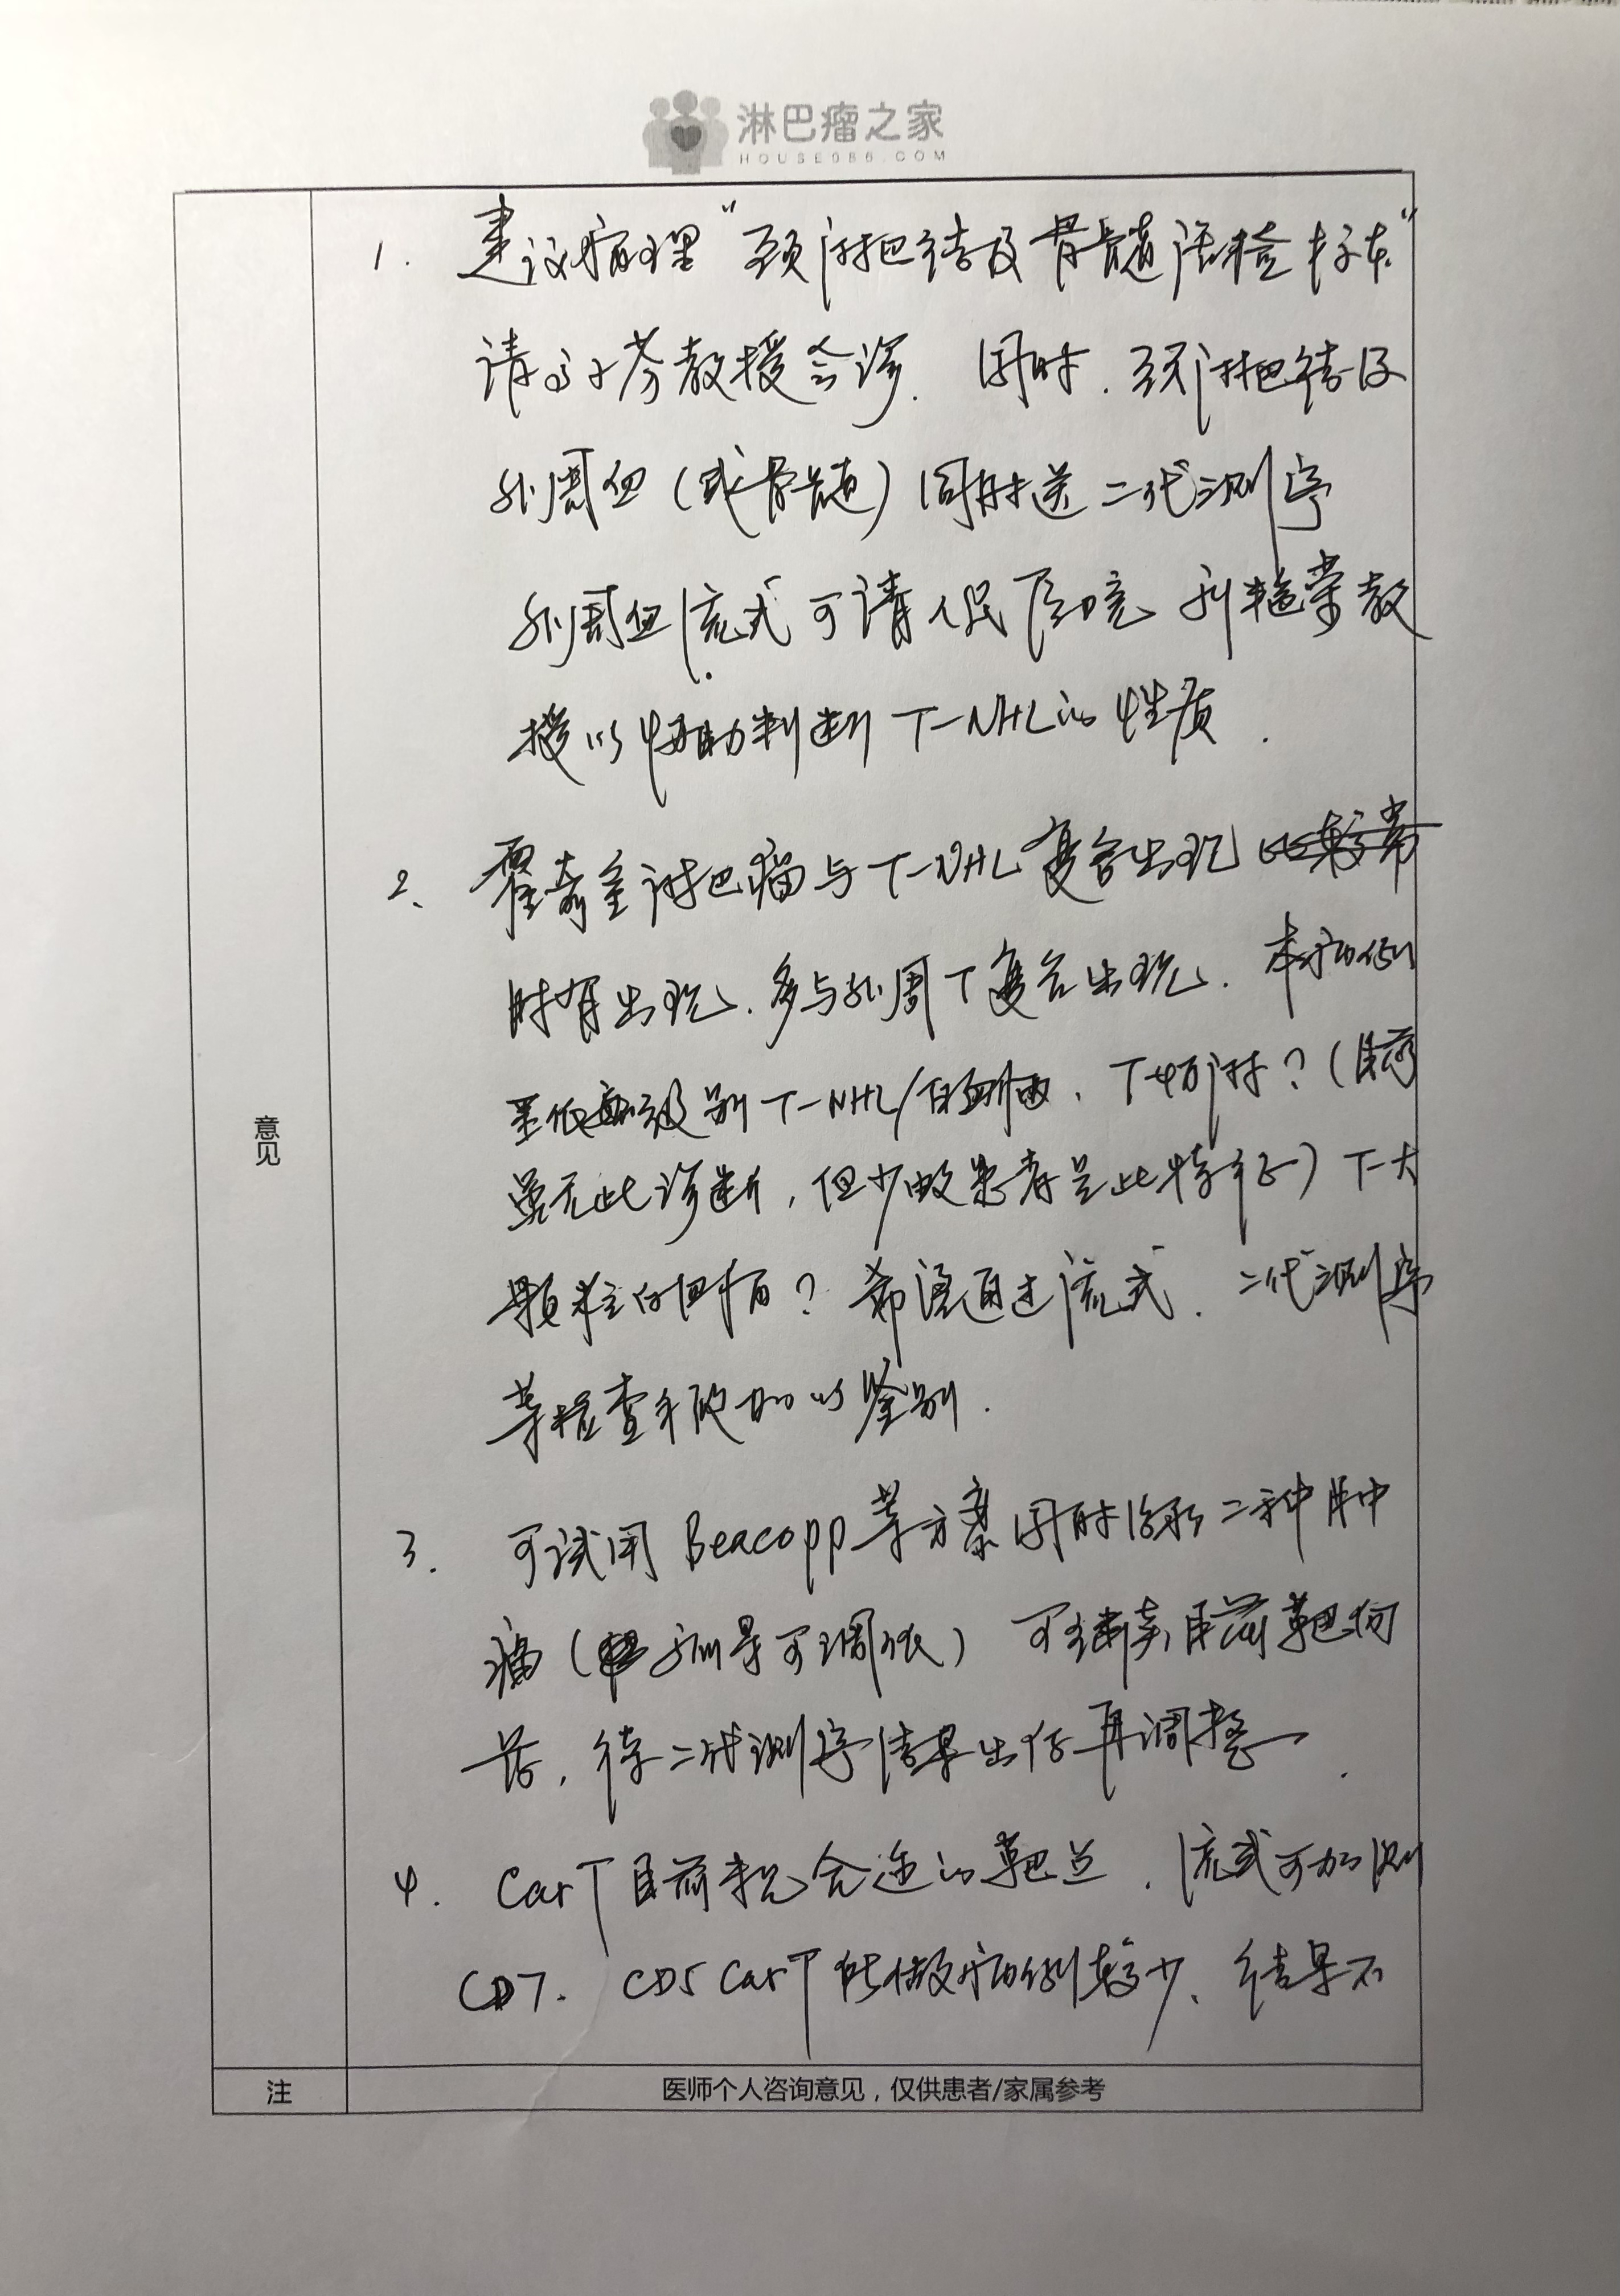 淋巴瘤之家
HOUSE086.COM
1. 建议病理“颈淋巴结及骨髓活检标本”
请高子芬教授会诊. 同时. 颈淋巴结及
外周血(或骨髓)同时送二代测序
外周血流式可请人民医院 刘艳荣教
授以辅助判断T-NHL的性质.
2、霍奇金淋巴瘤与T-NHL复合出现比较常
时有出现、多与外周T复合出现. 本病例
呈低级别T-NHL/白血病、T幼淋?(目前
虽无此诊断,但少数患者呈此特征)T-大
颗粒白血病? 希望通过流式、二代测序
等检查手段加以鉴别.
3. 可试用Beacopp等方案同时治疗二种肿
瘤(剂量可调低) 可继续目前靶向
药,待二代测序结果出后再调整.
4. CarT目前未见合适的靶点. 流式可加测
CD7. CD5 CarT所做病例较少、结果不
意见
注
医师个人咨询意见,仅供患者/家属参考